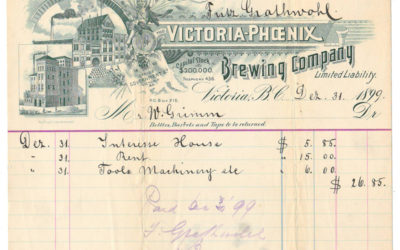 Fritz Grathwohl
VICTORIA-PHŒNIX
Brewing Company
Capital Stock
$300,000.
Limited Liability.
TELEPHONE 436
P.O. BOX 215
Victoria, B.C. Dez. 31. 1899.
Mr W. Grimm Dr.
Bottles, Barrels and Taps to be returned.
Dez. 31. Interesse House $ 5. 85.
" 31. Rent " 15. 00.
" 31. Tools Machinery etc " 6. 00.
$ 26. 85.
Paid Dec 31/99